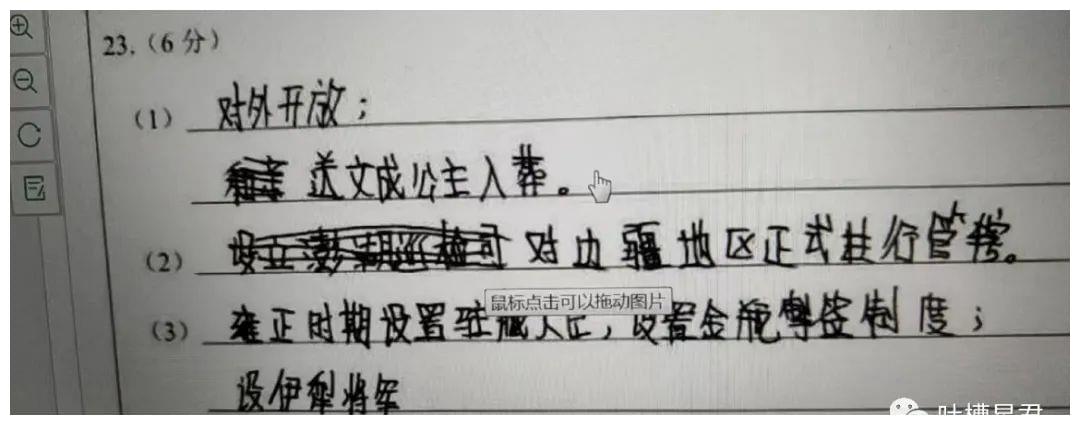 23.（6分）
（1） 对外开放；
送文成公主入葬。
（2） 对边疆地区正式进行管辖。
鼠标点击可以拖动图片
（3） 雍正时期设置驻藏大臣，设置金瓶掣签制度；
设伊犁将军
吐槽星君